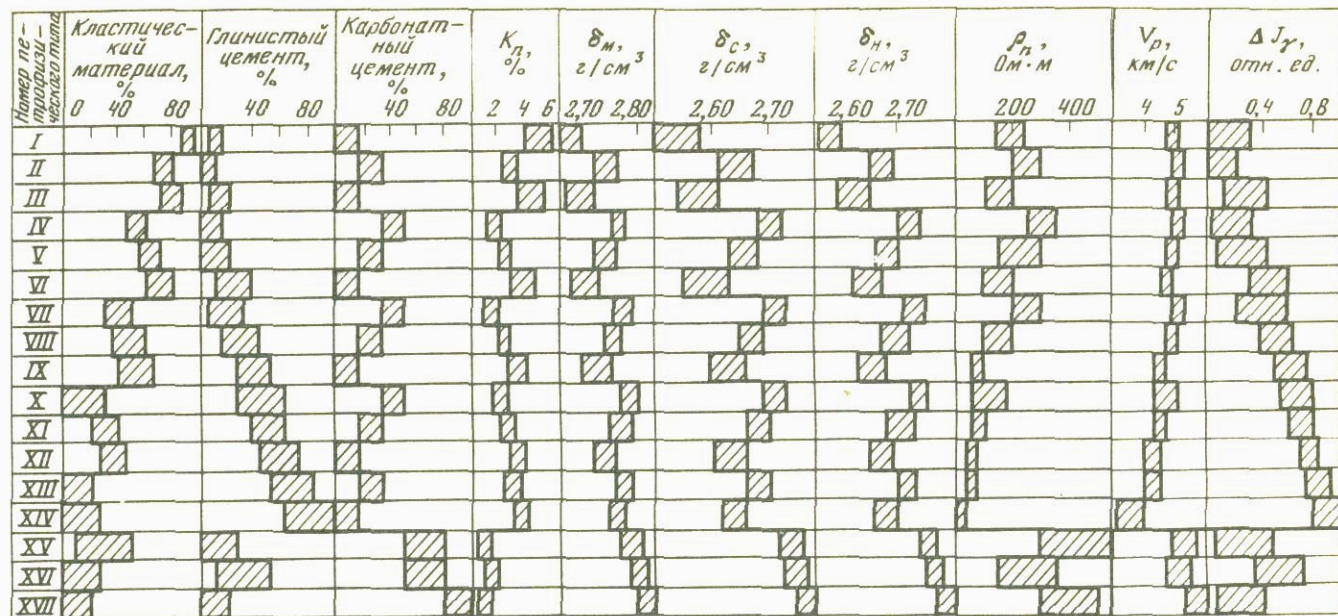 Номер пе-
трофизи-
ческого типа
Кластичес-
кий
материал,
%
0 40 80
Глинистый
цемент,
%
40 80
Карбонат-
ный
цемент,
%
40 80
Kп,
%
2 4 6
δм,
г/см³
2,70 2,80
δс,
г/см³
2,60 2,70
δн,
г/см³
2,60 2,70
ρп,
Ом·м
200 400
Vp,
км/с
4 5
Δ Jγ,
отн. ед.
0,4 0,8
I
II
III
IV
V
VI
VII
VIII
IX
X
XI
XII
XIII
XIV
XV
XVI
XVII